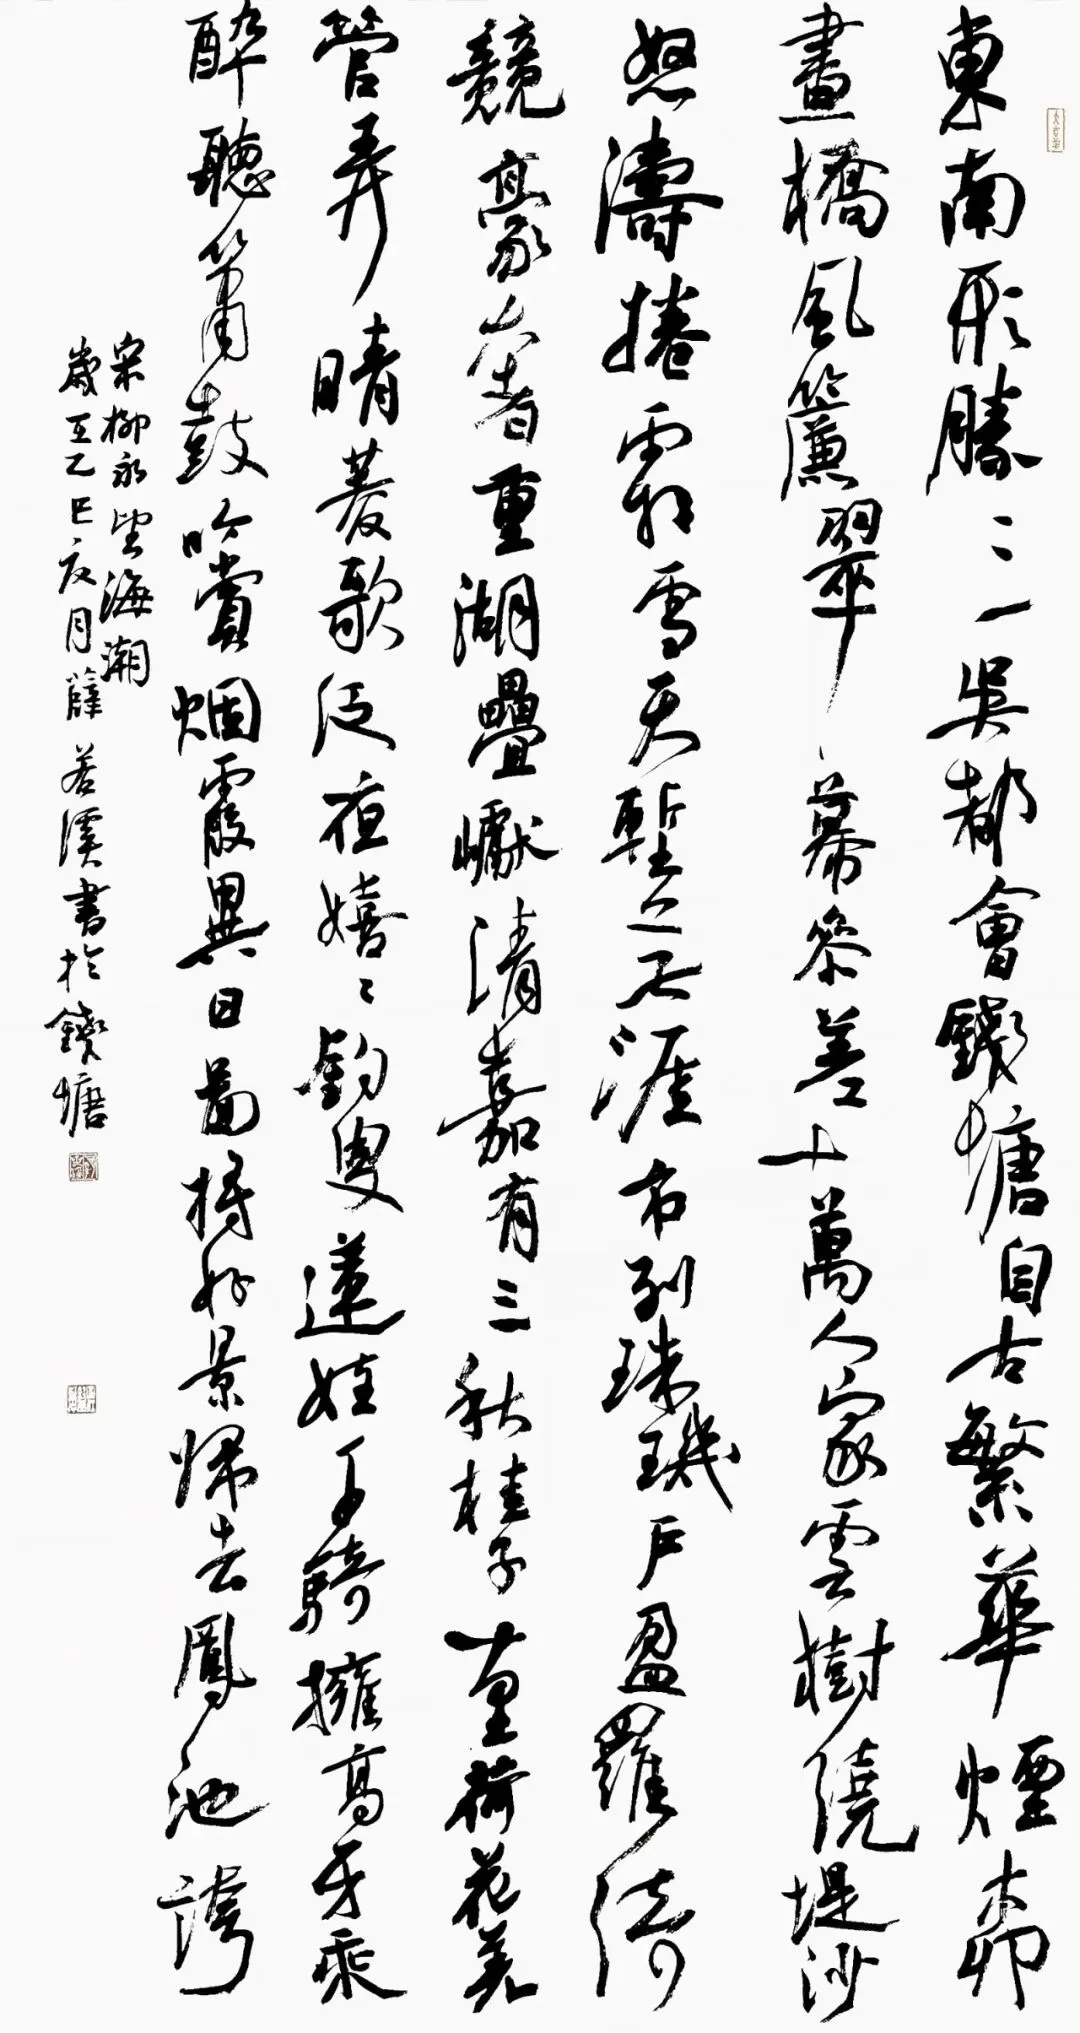 東南形勝三吳都會錢塘自古繁華煙柳
畫橋風簾翠幕參差十萬人家雲樹繞堤沙
怒濤捲霜雪天塹無涯市列珠璣戶盈羅綺
競豪奢重湖疊巘清嘉有三秋桂子十里荷花羌
管弄晴菱歌泛夜嬉々釣叟蓮娃千騎擁高牙乘
醉聽簫鼓吟賞烟霞異日圖將好景歸去鳳池誇
宋柳永望海潮
歲在乙巳夏月薛若溪書於錢塘